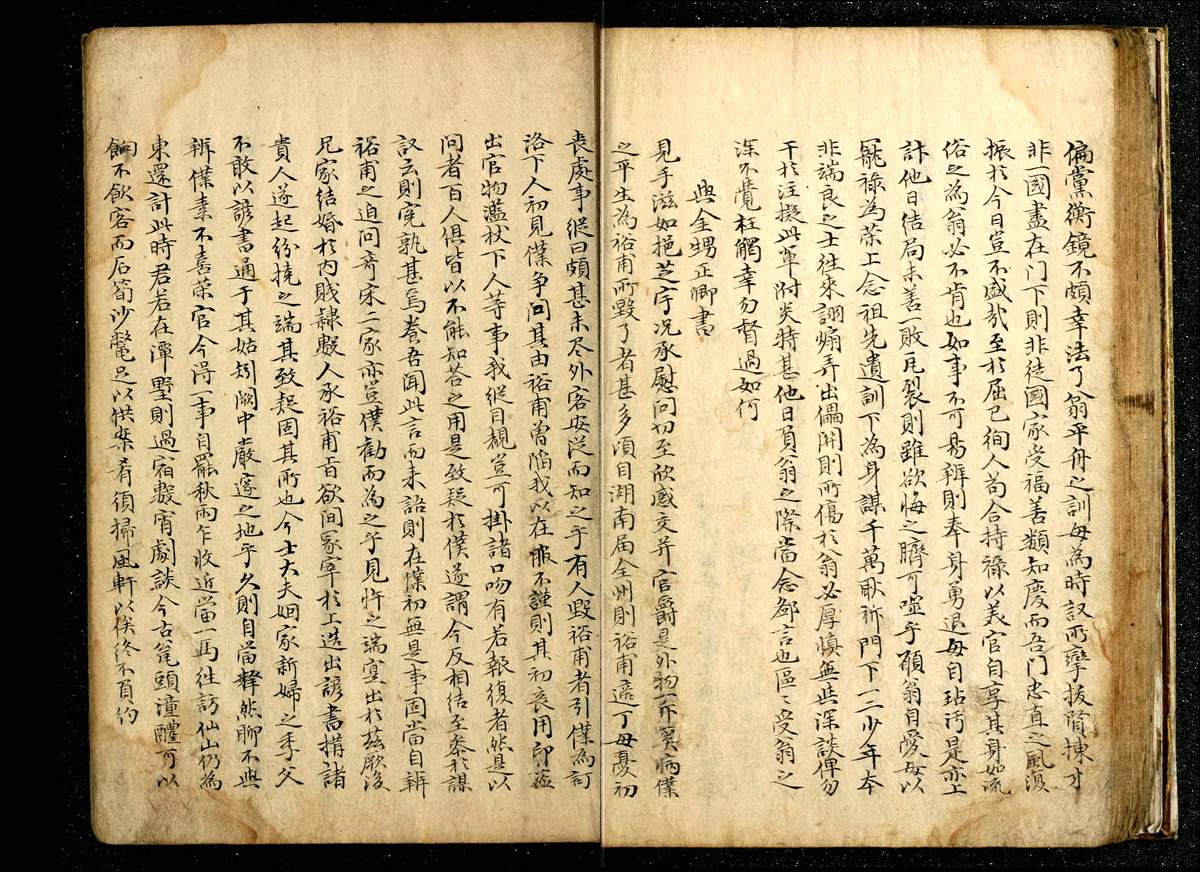 偏黨衡鏡不頗幸法了翁平舟之訓毋為時議所攣拔賢揀才
非一國盡在门下則非徒國家受福善類知慶而吾门忠直之風復
振於今日豈不盛哉至於屈已徇人苟合持祿以美官自享其身如流
俗之為翁必不肯也如事不可易辨則奉身勇退毋自玷汚是亦上
計他日結局未善一敗瓦裂則雖欲悔之臍可噬乎願翁自愛毋以
罷祿為榮上念祖先遺訓下為身謀千萬耿祈門下一二少年本
非端良之士往來謝煽弄出儘閙則所傷於翁必厚慎無些深談俾勿
干於注擬此軍附炎特甚他日負翁之際當念鄙言也區〻受翁之
深不覺枉觸幸勿督過如何
與金甥正卿書
見手滋如挹芝宇况承慰問切至欣感交并官爵是外物一斥冥病僕
之平生為裕甫所毀了者甚多頃自湖南届全州則裕甫遭丁毋憂初
喪處事縱曰頗甚未尽外客安從而知之乎有人毀裕甫者引僕為訂
洛下人初見僕争问其由裕甫曽陷我以在服不謹則其初喪用印盗
出官物濫杖下人等事我縱目覩豈可掛諸口吻有若報復者然是以
问者百人俱皆以不能知荅之用是致疑於僕遂謂今反相结至叅於謀
议云則寃孰甚焉眷吾闻此言而未詰則在僕初無是事固當自辨
裕甫之迫问奇宋二家亦豈僕勸而為之乎見忤之端寔出於兹厥後
兄家结婚於内贱隷數人承裕甫旨欲间冢宰於上造出諺書搆諸
貴人遂起紛撓之端其致疑固其所也今士大夫姻家新婦之季父
不敢以諺書通于其姑矧闕中嚴邃之地乎久則自當釋然聊不與
辨僕素不喜榮官今得一事自罷秋雨乍收近當一馬往訪仙山仍為
東還計此時君若在潭墅則過宿數宵劇談今古瓮頭潼醴可以
餉不飲客而石筍沙鼈足以供案肴須掃風軒以俟終不負约